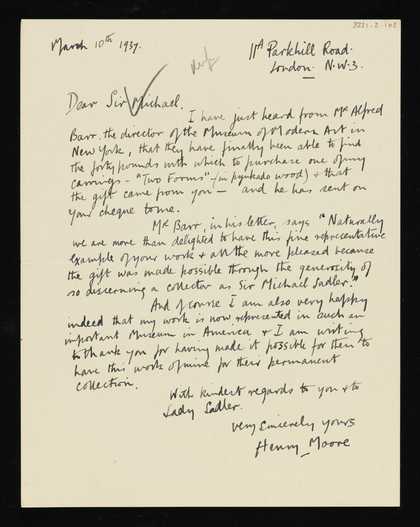 8221.2.108
March 10th 1937.
11A Parkhill Road.
London. N.W.3.
Dear Sir Michael.
I have just heard from Mr Alfred
Barr, the director of the Museum of Modern Art in
New York, that they have finally been able to find
the forty pounds with which to purchase one of my
carvings - "Two Forms" - (in pynkado wood) & that
the gift came from you - and he has sent on
your cheque to me.
Mr Barr, in his letter, says "Naturally
we are more than delighted to have this fine representative
example of your work & all the more pleased because
the gift was made possible through the generosity of
so discerning a collector as Sir Michael Sadler."
And of course I am also very happy
indeed that my work is now represented in such an
important Museum in America & I am writing
to thank you for having made it possible for them to
have this work of mine for their permanent
collection.
With kindest regards to you & to
Lady Sadler.
very sincerely yours
Henry Moore